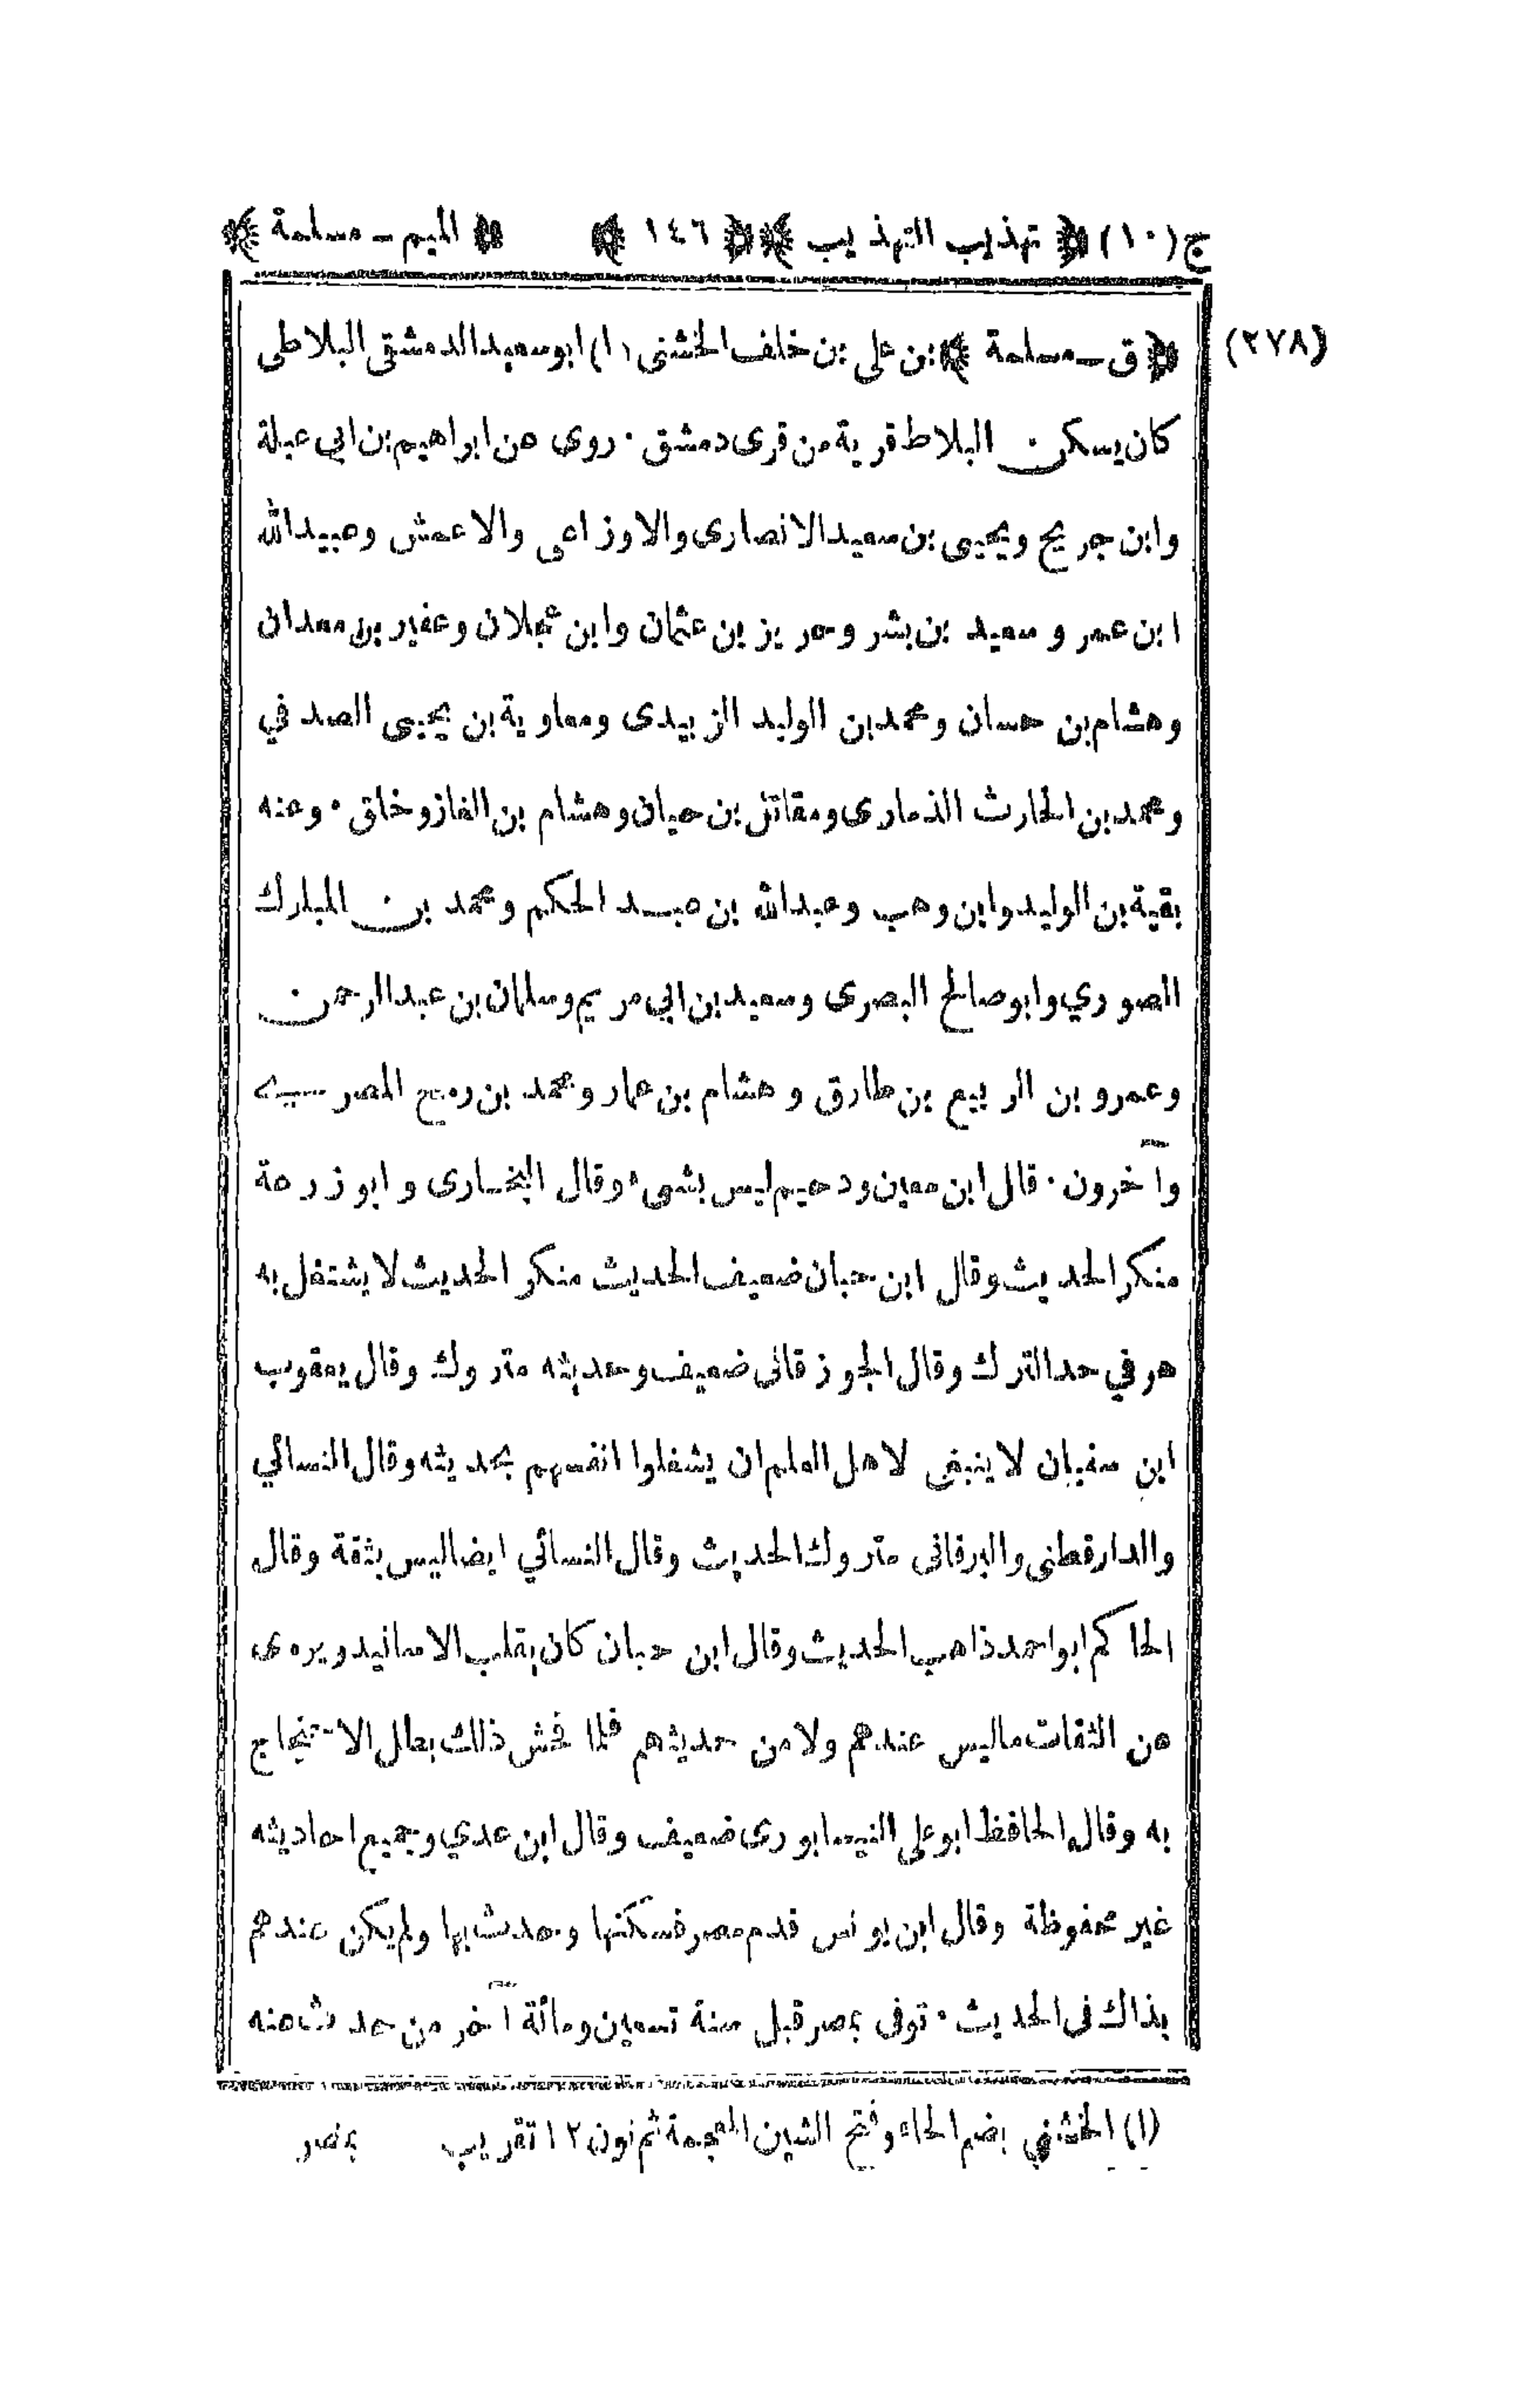 ج(١٠) ﴿ تهذيب التهذيب ﴾ ﴿ ١٤٦ ﴾ ﴿ الميم ــ مسلمة ﴾
(٢٧٨) ﴿ ق ــ مسلمة ﴾ بن علي بن خلف الخشني (١) ابو سعيد الدمشقي البلاطي
كان يسكن البلاط قرية من قرى دمشق ٠ روى عن ابراهيم بن ابي عبلة
وابن جريج ويحيى بن سعيد الانصارى والاوزاعى والاعمش وعبيدالله
ابن عمر وسعيد بن بشر وحريز بن عثمان وابن عجلان وعفير بن معدان
وهشام بن حسان ومحمد بن الوليد الزبيدى ومعاوية بن يحيى الصدفي
ومحمد بن الحارث الذمارى ومقاتل بن حيان وهشام بن الغاز وخلق ٠ وعنه
بقية بن الوليد وابن وهب وعبدالله بن عبد الحكم ومحمد بن المبارك
الصوري وابو صالح البصرى وسعيد بن ابي مريم وسلمان بن عبدالرحمن
وعمرو بن الربيع بن طارق وهشام بن عمار ومحمد بن رمح المصرى
وآخرون ٠ قال ابن معين ودحيم ليس بشىء وقال البخارى وابو زرعة
منكر الحديث وقال ابن حبان ضعيف الحديث منكر الحديث لا يشتغل به
هو في حد الترك وقال الجوزقانى ضعيف وحديثه متروك وقال يعقوب
ابن سفيان لا ينبغى لاهل العلم ان يشغلوا انفسهم بحديثه وقال النسائي
والدارقطنى والبرقانى متروك الحديث وقال النسائي ايضا ليس بثقة وقال
الحاكم ابو احمد ذاهب الحديث وقال ابن حبان كان يقلب الاسانيد ويروى
عن الثقات ما ليس عندهم ولا من حديثهم فلما فحش ذلك بطل الاحتجاج
به وقال الحافظ ابو على النيسابورى ضعيف وقال ابن عدي وجميع احاديثه
غير محفوظة وقال ابن يونس قدم مصر فسكنها وحدث بها ولم يكن عندهم
بذاك فى الحديث ٠ توفى بمصر قبل سنة تسعين ومائة آخر من حدث عنه
(١) الخشني بضم الخاء وفتح الشين المعجمة ثم نون ١٢ تقريب بمصر